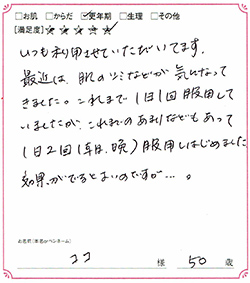 □お肌 □からだ ☑更年期 □生理 □その他
[満足度] ☆ ☆ ☆ ☆ ☆
いつも利用させていただいてます。
最近は、肌のシミなどが気になって
きました。これまで1日1回服用して
いましたが、これまでのあまりなどもあって
1日2回(朝、晩)服用しはじめました
効果がでるとよいのですが…。
お名前(本名orペンネーム)
ココ 様 50 歳